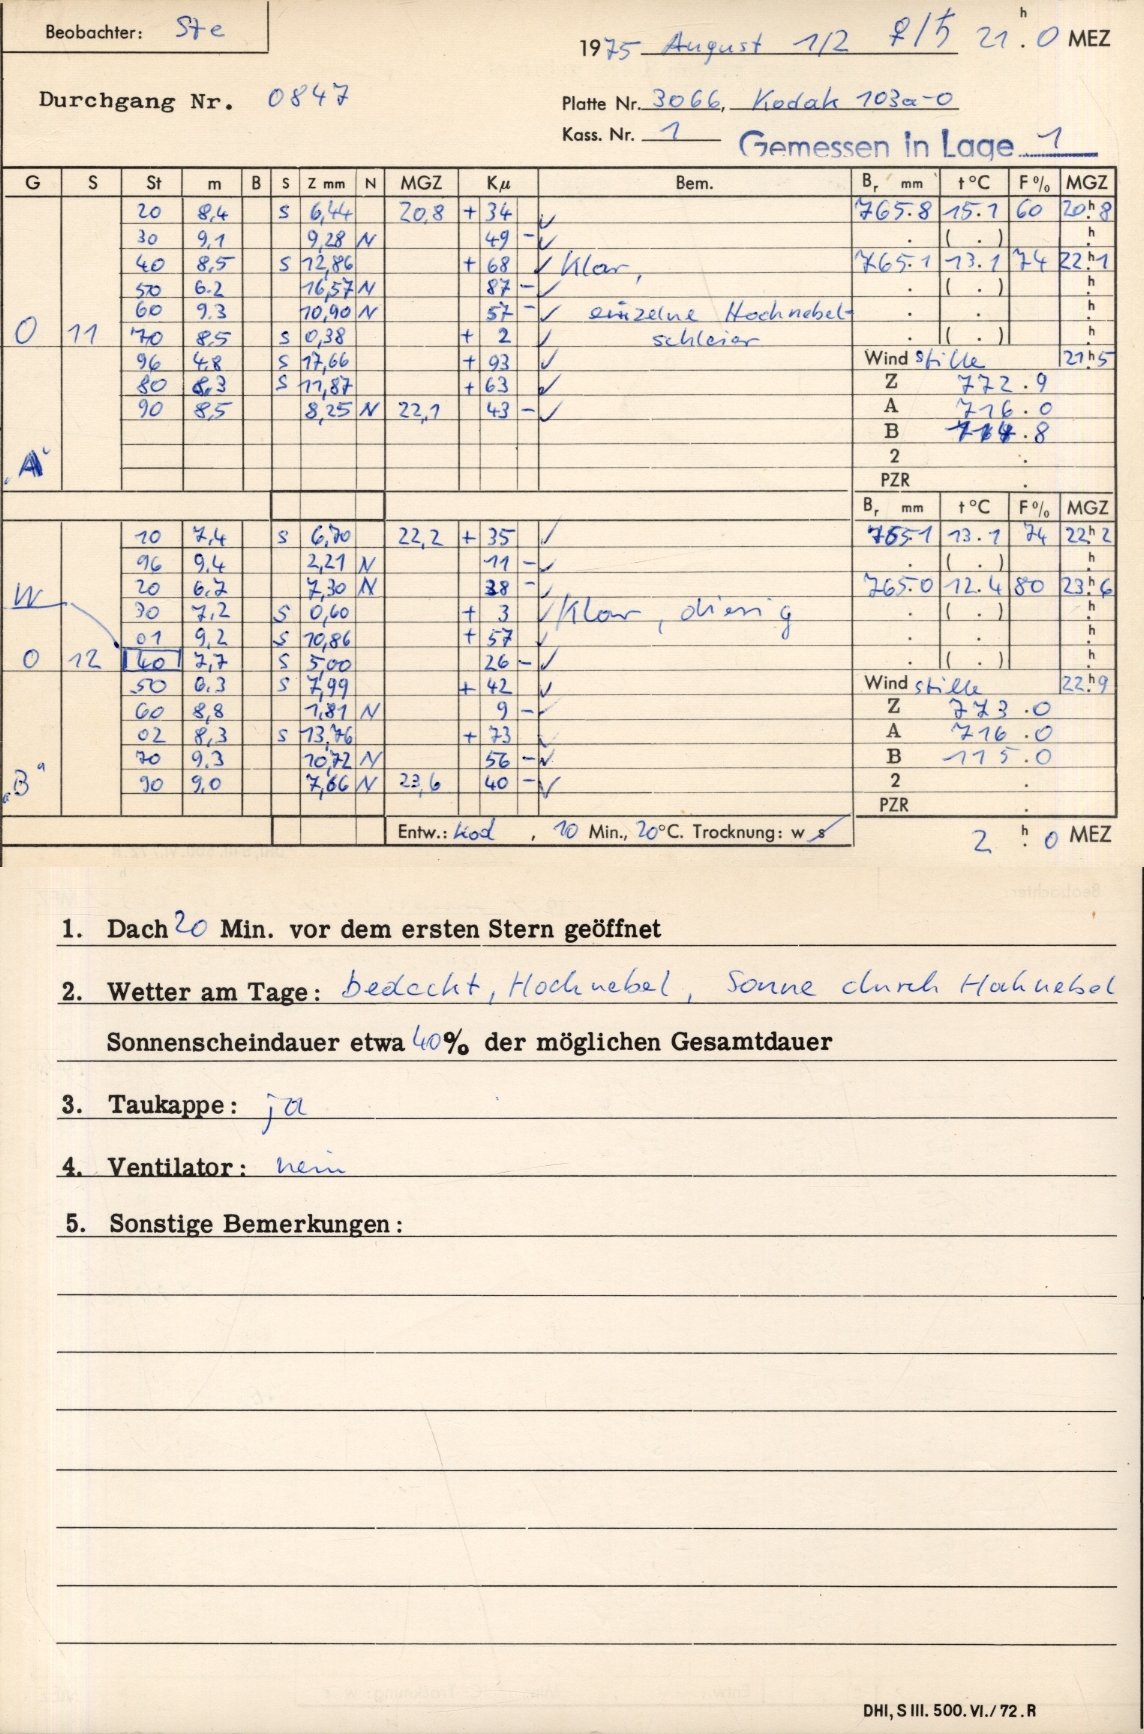 Beobachter: Ste
1975 August 1/2 ♀/♄ 21.ʰ0 MEZ
Durchgang Nr. 0847
Platte Nr. 3066, Kodak 103a-0
Kass. Nr. 1
Gemessen in Lage 1
G S St m B S Z mm N MGZ Kμ Bem. Bᵣ mm t °C F % MGZ
20 8,4 S 6,44 20,8 + 34 765.8 15.1 60 20.ʰ8
30 9,1 9,28 N 49 - . ( . ) ʰ.
40 8,5 S 12,86 + 68 Klar, 765.1 13.1 74 22.ʰ1
50 6.2 16,57 N 87 - . ( . ) ʰ.
60 9.3 10,90 N 57 - einzelne Hochnebel- . . ʰ.
0 11 70 8,5 S 0,38 + 2 schleier . ( . ) ʰ.
96 4.8 S 17,66 + 93 Wind stille 21.ʰ5
80 8.3 S 11,87 + 63 Z 772.9
90 8,5 8,25 N 22,1 43 - A 716.0
B .8
„A“ 2 .
PZR .
Bᵣ mm t °C F % MGZ
10 7,4 S 6,70 22,2 + 35 765.1 13.1 74 22.ʰ2
96 9.4 2,21 N 11 - . ( . ) ʰ.
W 20 6.7 7,30 N 38 - 765.0 12.4 80 23.ʰ6
30 7,2 S 0,60 + 3 Klar, diesig . ( . ) ʰ.
01 9,2 S 10,86 + 57 . . ʰ.
0 12 40 7,7 S 5,00 26 - . ( . ) ʰ.
50 6.3 S 7,99 + 42 Wind stille 22.ʰ9
60 8,8 1,81 N 9 - Z 773.0
02 8,3 S 13,76 + 73 A 716.0
70 9.3 10,72 N 56 - B 115.0
„B“ 90 9,0 7,66 N 23,6 40 - 2 .
PZR .
Entw.: Kod , 10 Min., 20°C. Trocknung: w s
2.ʰ0 MEZ
1. Dach 20 Min. vor dem ersten Stern geöffnet
2. Wetter am Tage: bedeckt, Hochnebel, Sonne durch Hochnebel
Sonnenscheindauer etwa 40% der möglichen Gesamtdauer
3. Taukappe: ja
4. Ventilator: nein
5. Sonstige Bemerkungen:
DHI, S III. 500. VI./72. R